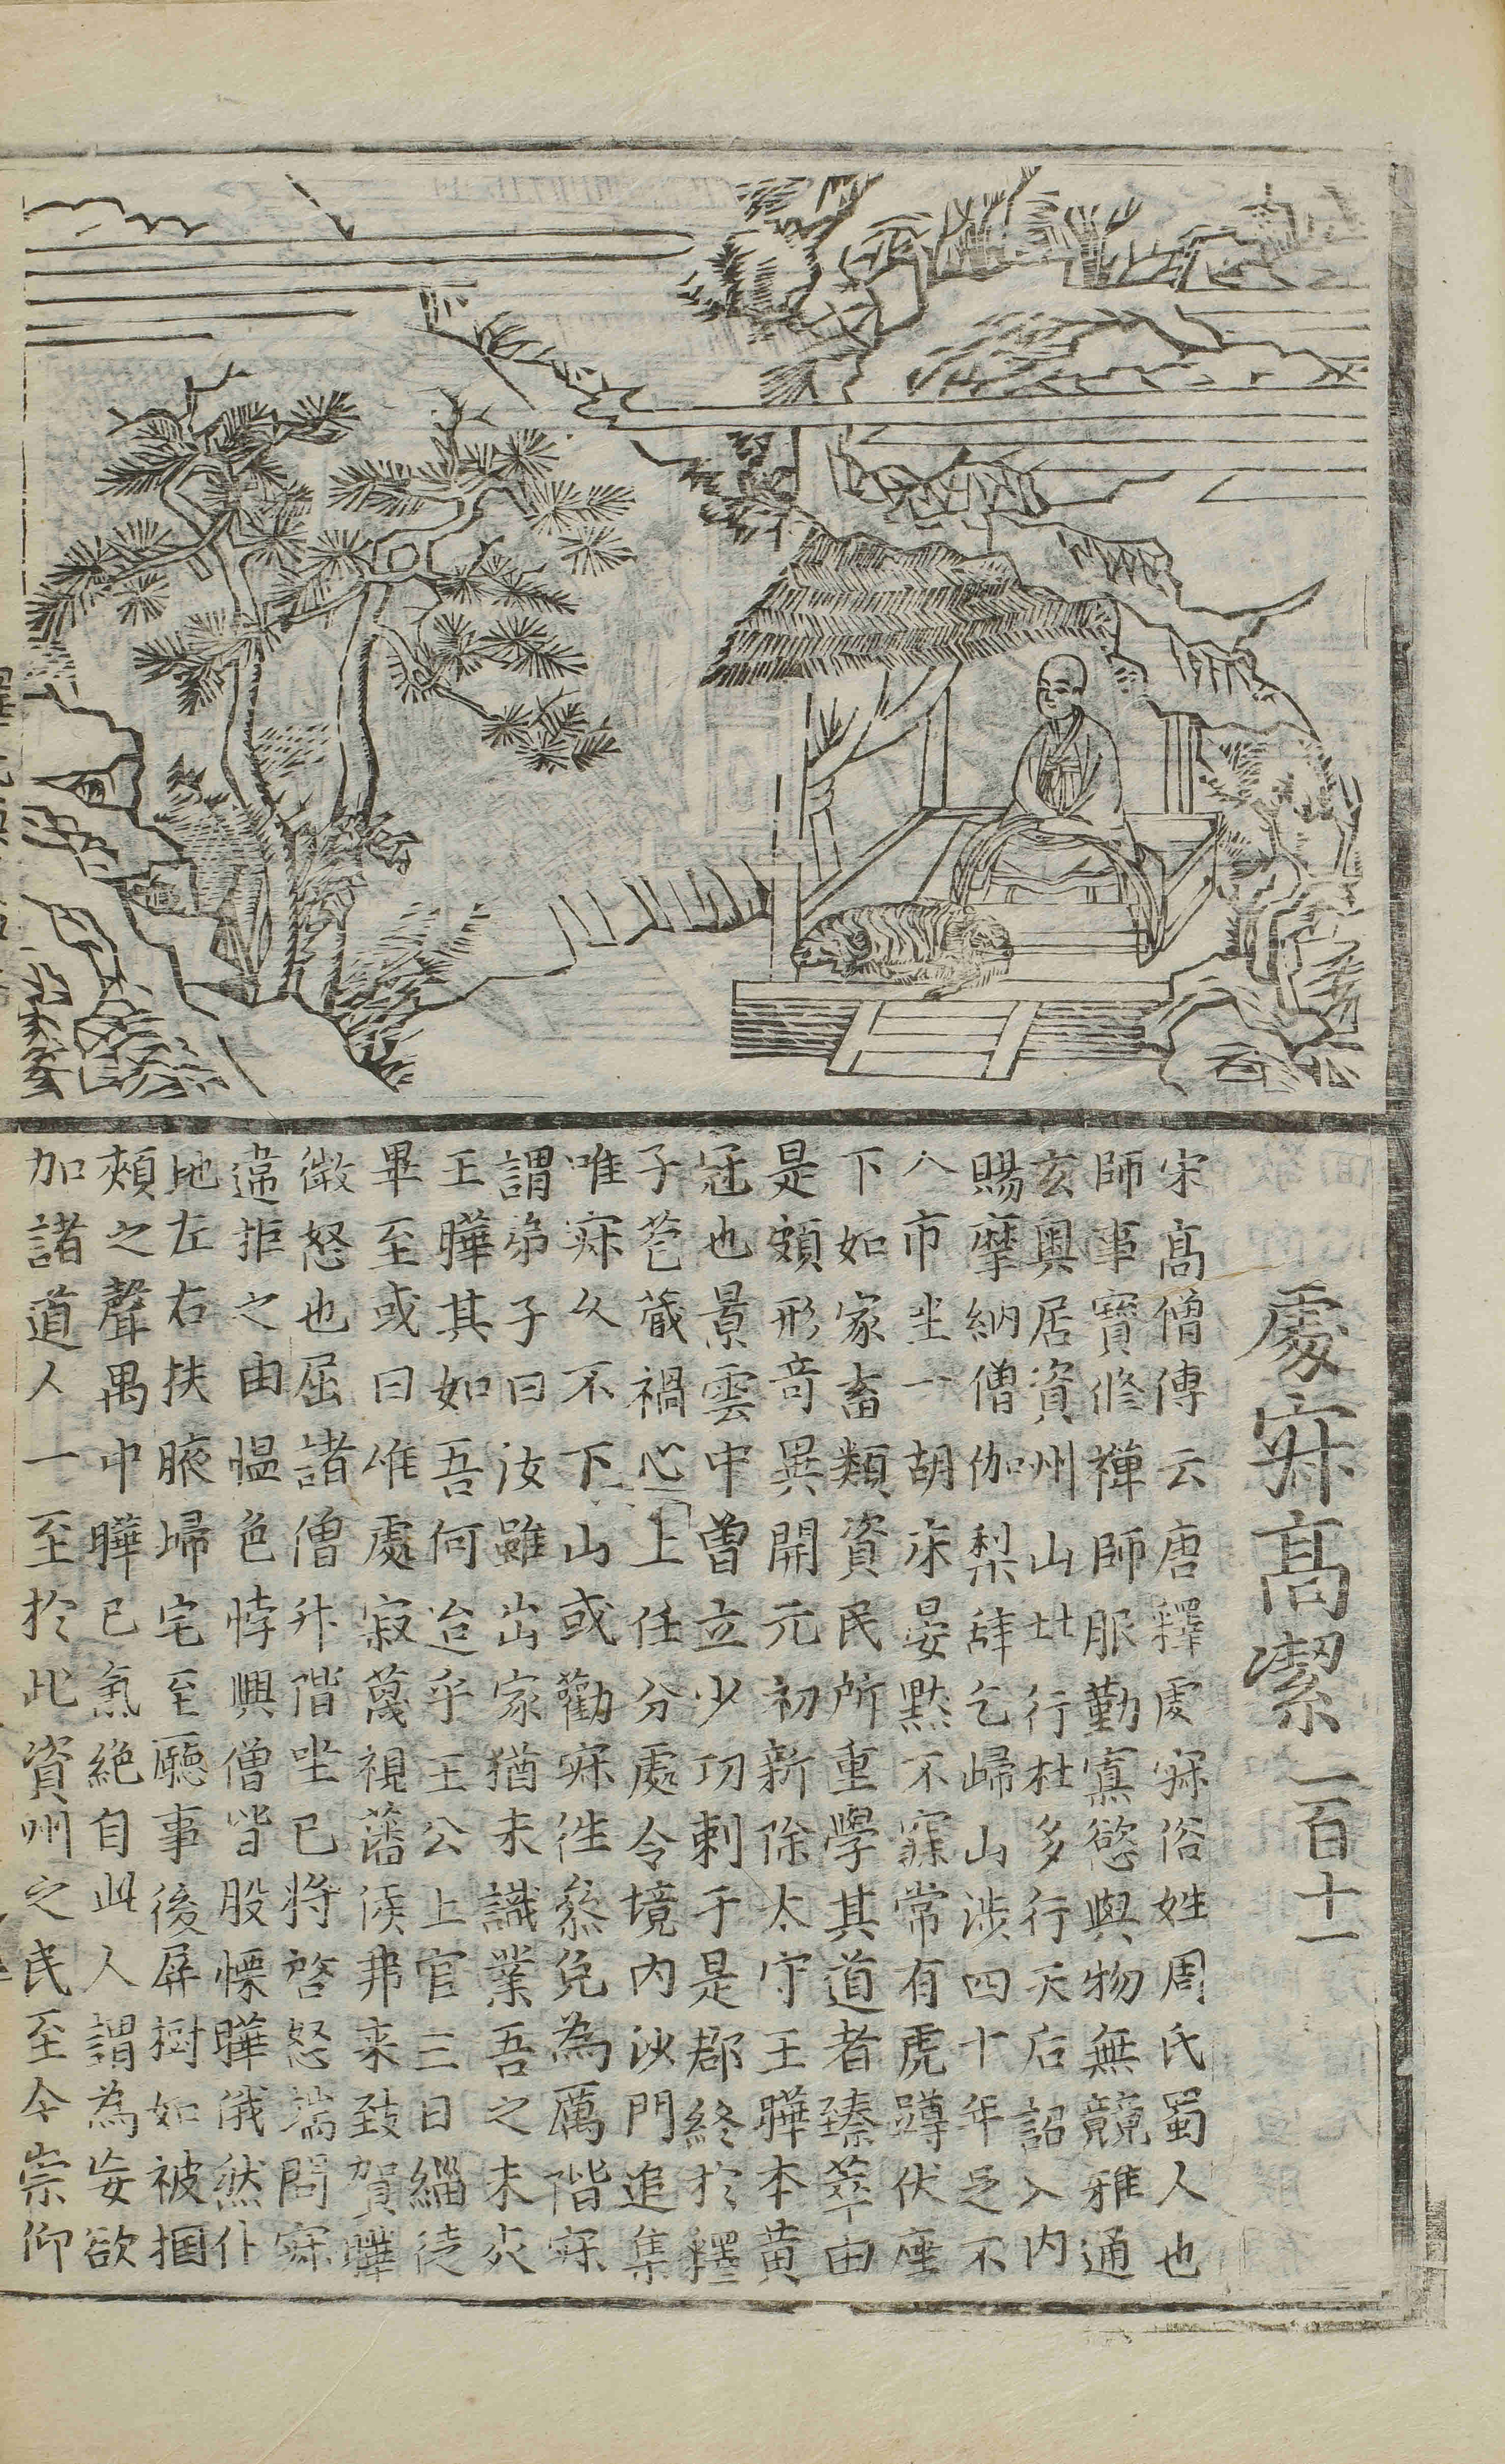 處寂高潔 一百十一
宋高僧傳云唐釋處寂俗姓周氏蜀人也
師事寶修禪師服勤寡慾與物無競雅通
玄奧居資州山北行杜多行天后詔入內
賜摩納僧伽梨辞乞歸山涉四十年足不
入市坐一胡床晏默不寐常有虎蹲伏座
下如家畜類資民所重學其道者臻萃由
是頗形竒異開元初新除太守王曄本黄
冠也景雲中曾立少功刺于是郡終於釋
子苞蔵禍心上任分處令境內沙門追集
唯寂久不下山或勸寂徃叅免為厲階寂
謂弟子曰汝雖出家猶未識業吾之未灾
王曄其如吾何迨乎王公上官三日緇徒
畢至或曰唯處寂蔑視藩侯弗来致賀曄
微怒也屈諸僧升階坐已將啓怒端問寂
違拒之由愠色悖興僧皆股慄曄俄然仆
地左右扶腋歸宅至廳事後屏樹如被摑
頰之聲禺中曄已氣絶自此人謂為妄欲
加諸道人一至於此資州之民至今崇仰